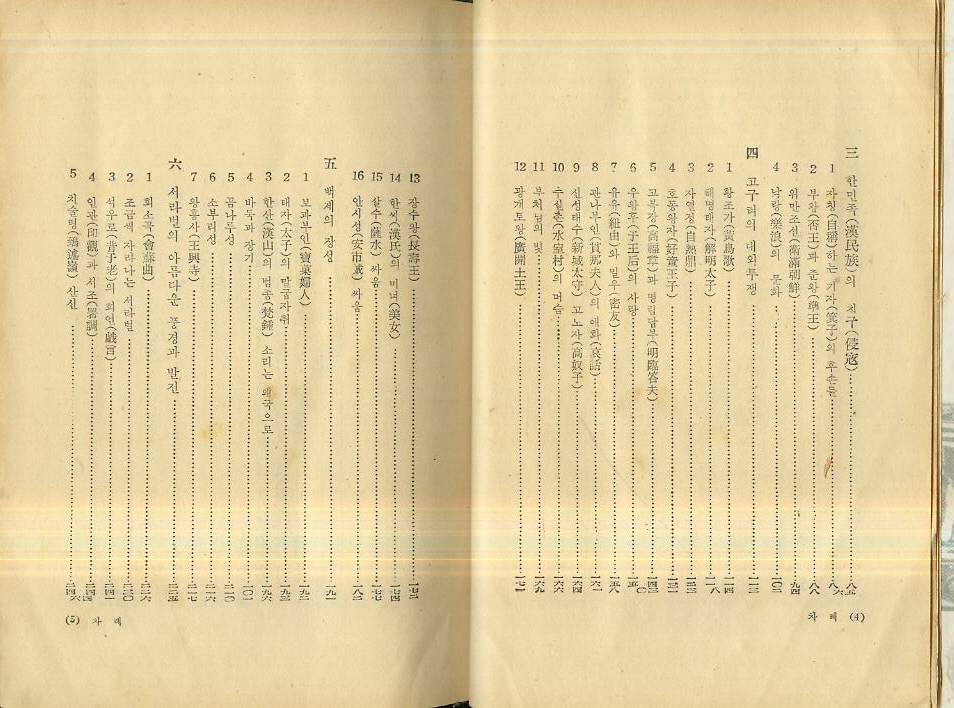 三 한민족(漢民族)의 침구(侵寇)……八五
1 자칭(自稱)하는 기자(箕子)의 후손들……八六
2 부왕(否王)과 준왕(準王)……八八
3 위만조선(衛滿朝鮮)……九四
4 낙랑(樂浪)의 문화……一〇二
四 고구려의 대외투쟁……一一三
1 황조가(黃鳥歌)……一一四
2 해명태자(解明太子)……一一八
3 자열정(自熱鼎)……一二三
4 호동왕자(好童王子)……一三一
5 고복장(高福章)과 명림답부(明臨答夫)……一四三
6 우왕후(于王后)의 사랑……一五〇
7 유유(紐由)와 밀우(密友)……一五六
8 관나부인(貫那夫人)의 애화(哀話)……一六一
9 신성태수(新城太守) 고노자(高奴子)……一六四
10 수실촌(水室村)의 머슴……一六六
11 부처님의 빛……一六九
12 광개토왕(廣開土王)……一七一
차례 (4)
13 장수왕(長壽王)……一七二
14 한씨(漢氏)의 미녀(美女)……一七四
15 살수(薩水) 싸움……一七七
16 안시성(安市城) 싸움……一八二
五 백제의 장성……一九一
1 보과부인(寶菓婦人)……一九二
2 태자(太子)의 말굽자취……一九三
3 한산(漢山)의 범종(梵鍾) 소리는 왜국으로……一九六
4 바둑과 장기……二〇一
5 곰나루성……二一〇
6 소부리성……二一六
7 왕흥사(王興寺)……二一七
六 서라벌의 아름다운 풍경과 발전……二二五
1 회소곡(會蘇曲)……二二六
2 조금씩 자라나는 서라벌……二三〇
3 석우로(昔于老)의 희언(戱言)……二四一
4 인관(印觀)과 서조(署調)……二四四
5 치술령(鵄述嶺) 산신……二四六
(5) 차례